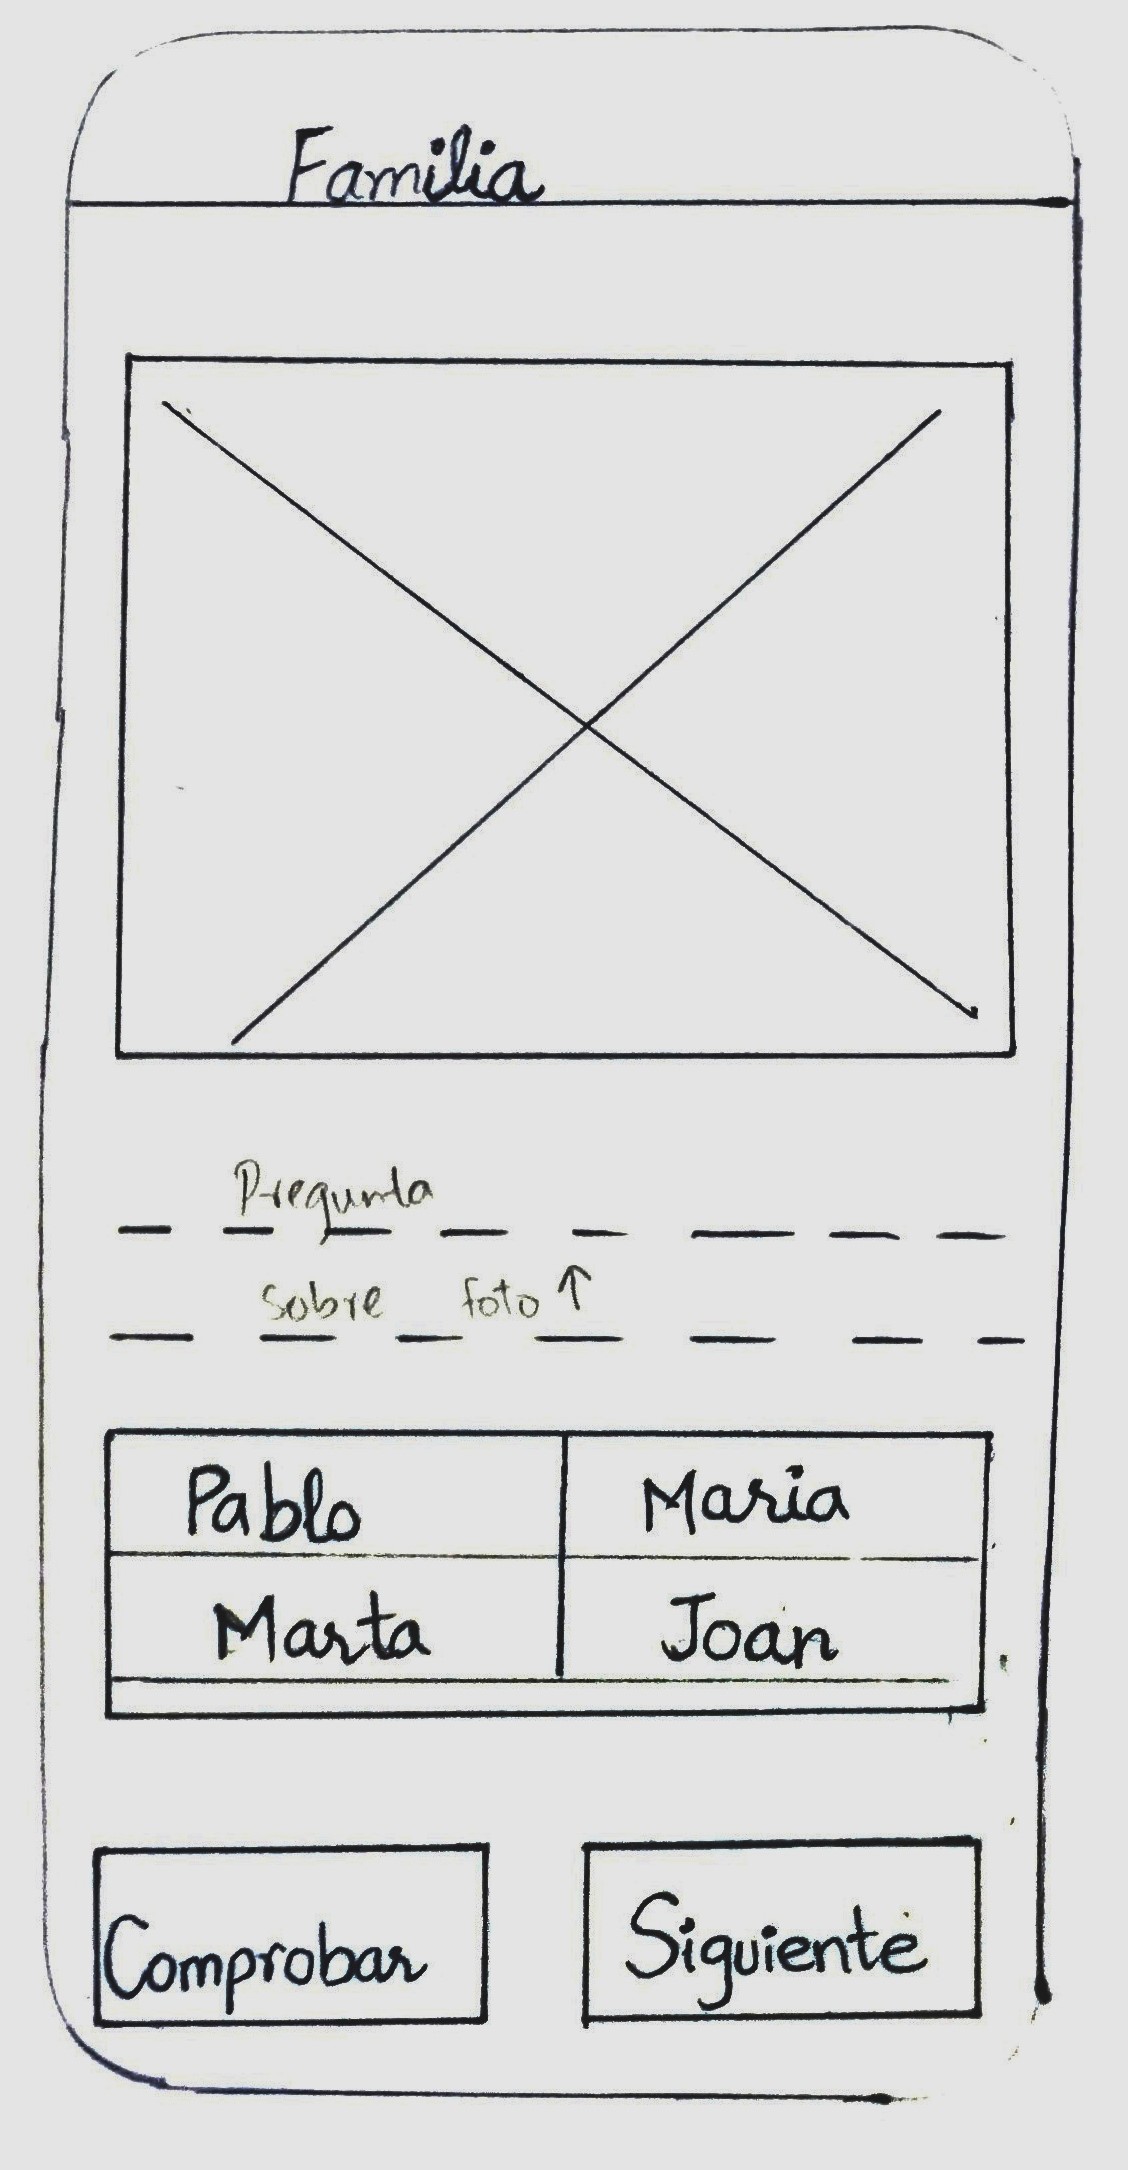 Familia
Pregunta
sobre foto ↑
Pablo Maria
Marta Joan
Comprobar Siguiente